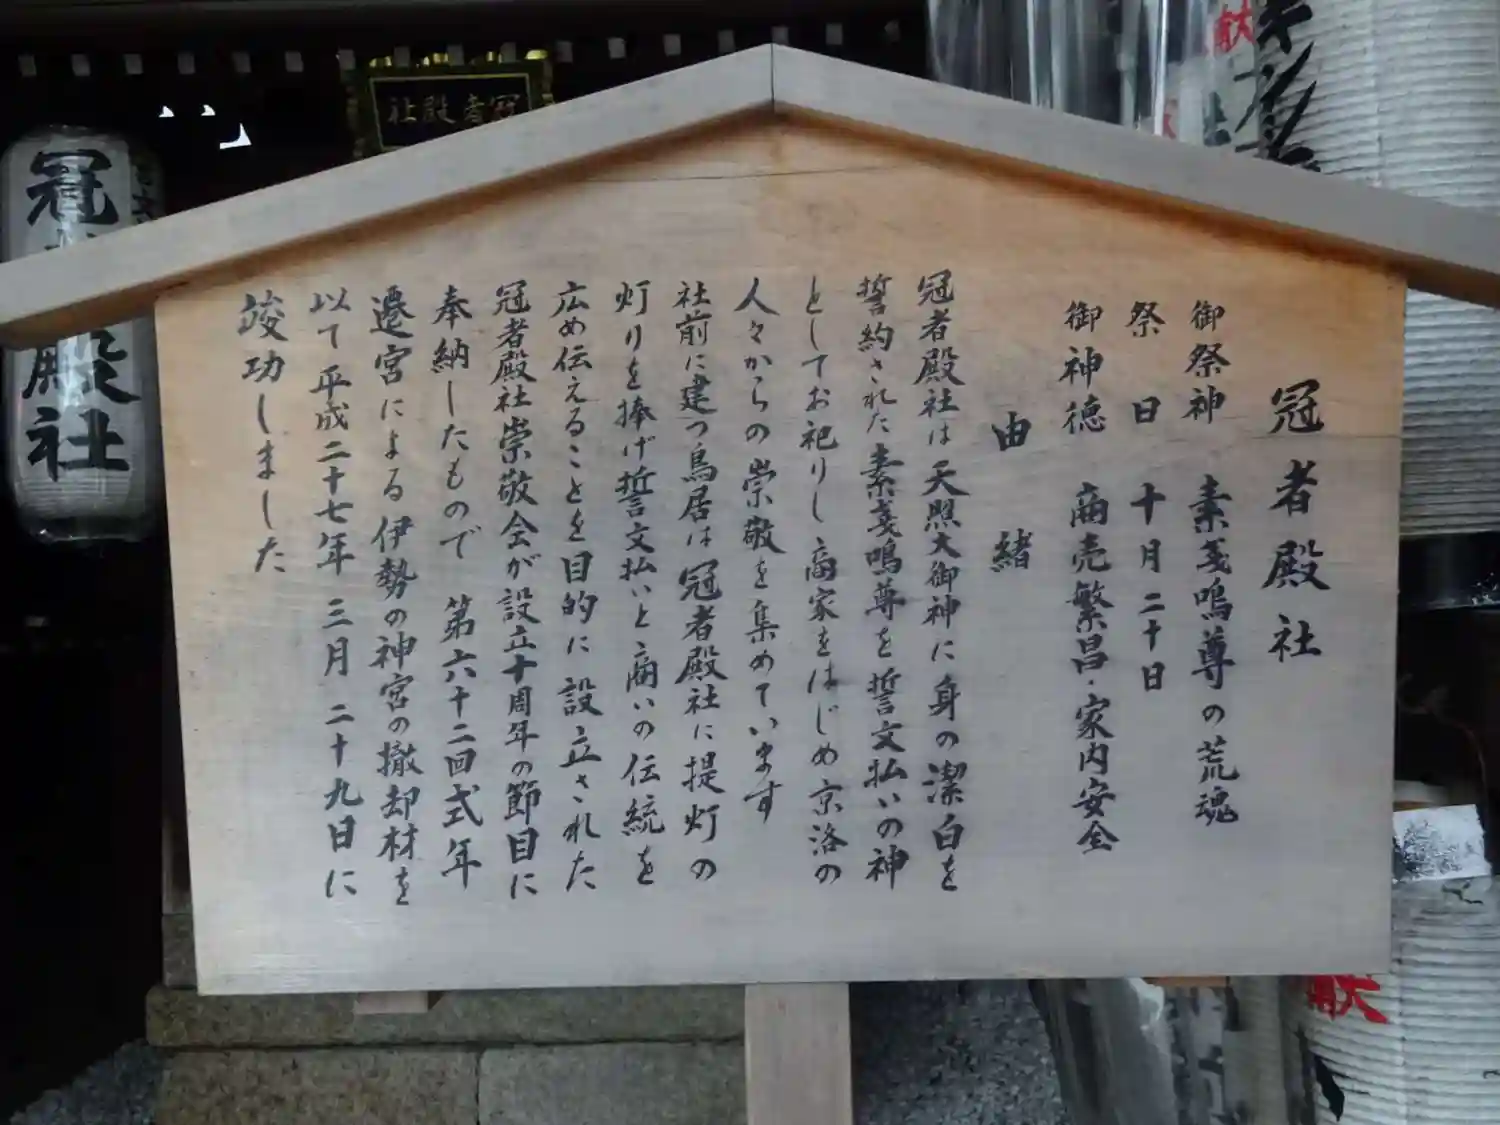 冠者殿社
御祭神 素戔嗚尊の荒魂
祭日 十月二十日
御神徳 商売繁昌・家内安全
由緒
冠者殿社は天照大御神に身の潔白を
誓約された素戔嗚尊を誓文払いの神
としてお祀りし商家をはじめ京洛の
人々からの崇敬を集めています
社前に建つ鳥居は冠者殿社に提灯の
灯りを捧げ誓文払いと商いの伝統を
広め伝えることを目的に設立された
冠者殿社崇敬会が設立十周年の節目に
奉納したもので 第六十二回式年
遷宮による伊勢の神宮の撤却材を
以て平成二十七年 三月 二十九日に
竣功しました
冠者殿社
冠 殿社
献
献